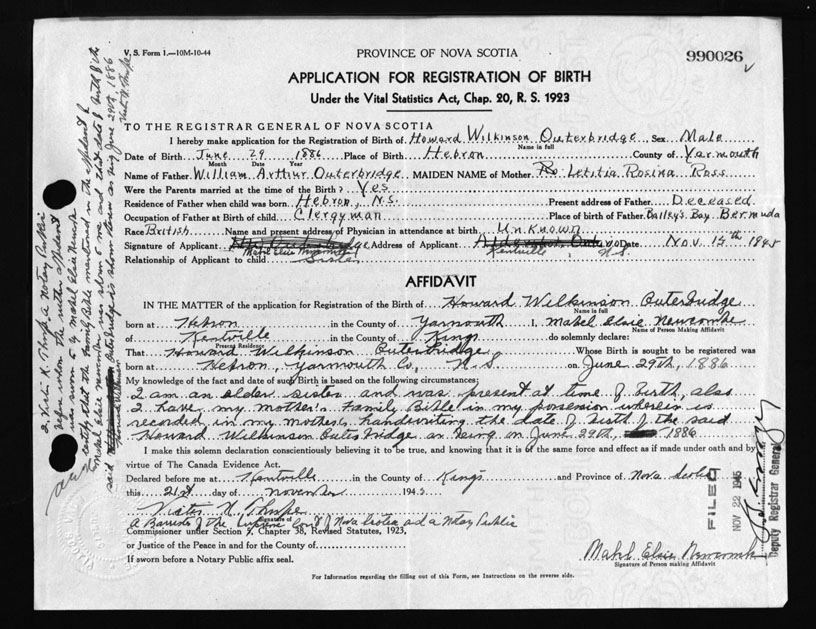 V. S. Form 1.—10M-10-44
PROVINCE OF NOVA SCOTIA
990026
APPLICATION FOR REGISTRATION OF BIRTH
Under the Vital Statistics Act, Chap. 20, R. S. 1923
TO THE REGISTRAR GENERAL OF NOVA SCOTIA
I hereby make application for the Registration of Birth of Howard Wilkinson Outerbridge Sex Male
Name in full
Date of Birth June 29 1886 Place of Birth Hebron County of Yarmouth
Month Date Year
Name of Father William Arthur Outerbridge MAIDEN NAME of Mother Letitia Rosina Ross
Were the Parents married at the time of the Birth? Yes
Residence of Father when child was born Hebron, N.S. Present address of Father Deceased
Occupation of Father at Birth of child Clergyman Place of birth of Father Bailey's Bay Bermuda
Race British Name and present address of Physician in attendance at birth Unknown
Signature of Applicant Mabel Elsie Address of Applicant Kentville N.S. Date Nov. 15th 1945
Relationship of Applicant to child Sister
AFFIDAVIT
IN THE MATTER of the application for Registration of the Birth of Howard Wilkinson Outerbridge
Name in full
born at Hebron in the County of Yarmouth I, Mabel Elsie Newcombe
Name of Person Making Affidavit
of Kentville in the County of Kings do solemnly declare:
Present Residence
That Howard Wilkinson Outerbridge Whose Birth is sought to be registered was
born at Hebron, Yarmouth Co, N S on June 29th, 1886
My knowledge of the fact and date of such Birth is based on the following circumstances:
I am an older sister and was present at time of birth, also
I have my mother's Family Bible in my possession wherein is
recorded in my mothers handwriting the date of birth of the said
Howard Wilkinson Outerbridge as being on June 29th, 1886
I make this solemn declaration conscientiously believing it to be true, and knowing that it is of the same force and effect as if made under oath and by
virtue of The Canada Evidence Act.
Declared before me at Kentville in the County of Kings and Province of Nova Scotia
this 21st day of November 1945
Victor K.
Signature of
A Barrister of the Supreme Court of Nova Scotia and a Notary Public
Commissioner under Section 7, Chapter 38, Revised Statutes, 1923,
or Justice of the Peace in and for the County of
If sworn before a Notary Public affix seal.
Mabel Elsie Newcombe
Signature of Person making Affidavit
For Information regarding the filling out of this Form, see Instructions on the reverse side.
FILED
NOV 22 1945
Deputy Registrar General
I, Victor K. a Notary Public
before whom the within affidavit
was sworn by Mabel Elsie Newcombe
certify that the Family Bible mentioned in the affidavit of
Mabel Elsie Newcombe was shown me and that date of birth of the
said Howard Wilkinson Outerbridge is shown therein as being June 29th, 1886
Victor K.